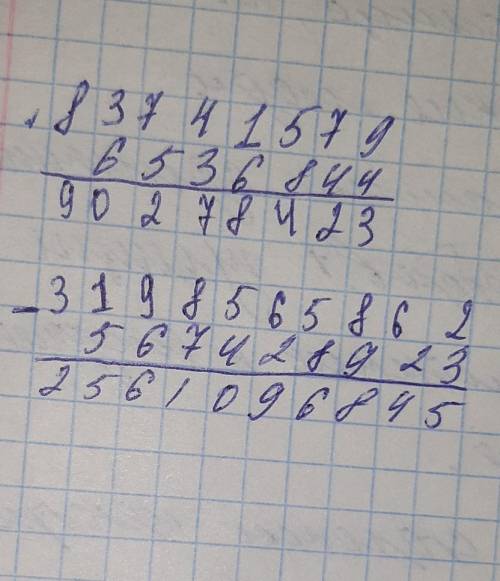 + 8 3 7 4 1 5 7 9
6 5 3 6 8 4 4
9 0 2 7 8 4 2 3
- 3 1 9 8 5 6 5 8 6 2
5 6 7 4 2 8 9 2 3
2 5 6 1 0 9 6 8 4 5